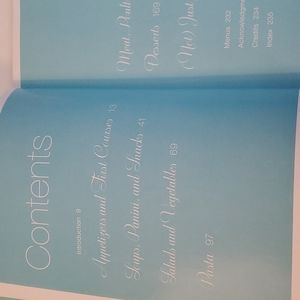 Contents
Introduction 9
Appetizers and First Courses 13
Soups, Panini, and Snacks 41
Salads and Vegetables 69
Pasta 97
Meat, Poult
Desserts 169
(Not) Just
Menus 232
Acknowledgme
Credits 234
Index 235